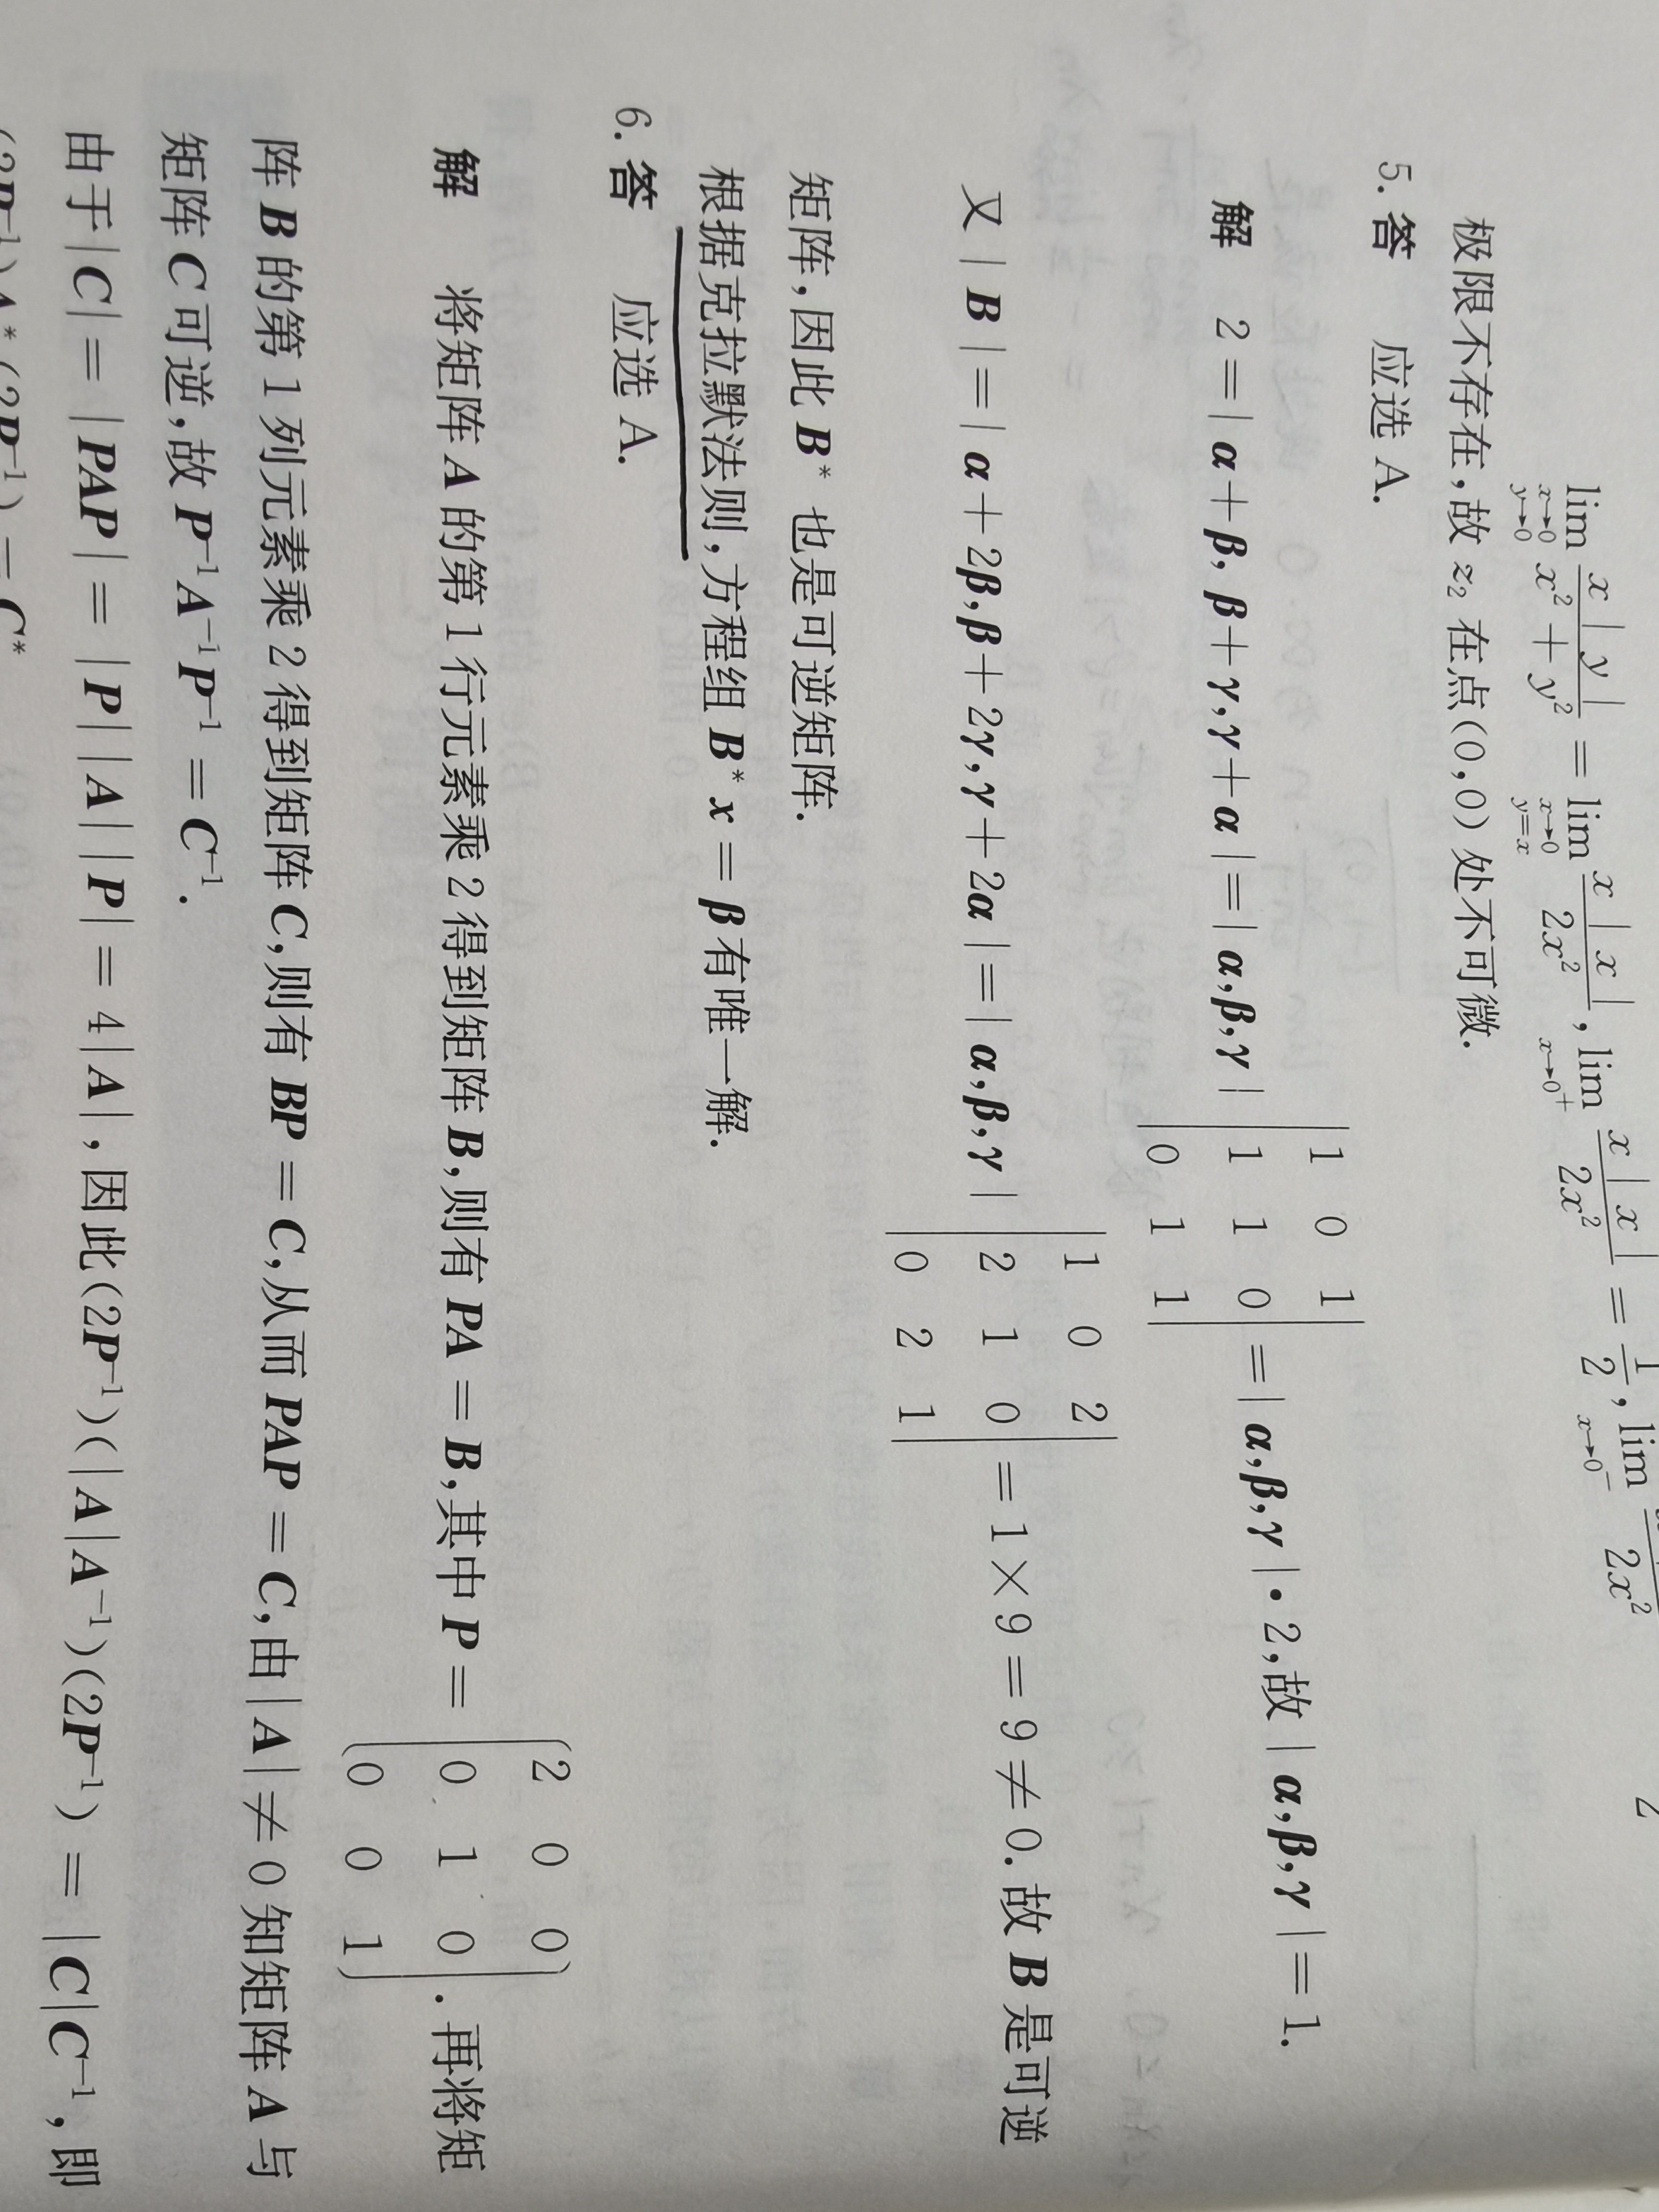 lim_{x→0, y→0} x|y|/(x²+y²) = lim_{x→0, y=x} x|x|/2x², lim_{x→0⁺} x|x|/2x² = 1/2, lim_{x→0⁻} /2x²
极限不存在,故 z₂ 在点(0,0) 处不可微.
5. 答 应选 A.
解 2=|α+β, β+γ,γ+α|=|α,β,γ| |1 0 1; 1 1 0; 0 1 1| =|α,β,γ|·2,故|α,β,γ|=1.
又|B|=|α+2β,β+2γ,γ+2α|=|α,β,γ| |1 0 2; 2 1 0; 0 2 1| =1×9=9≠0.故 B 是可逆
矩阵,因此 B* 也是可逆矩阵.
根据克拉默法则,方程组 B*x=β有唯一解.
6. 答 应选 A.
解 将矩阵 A 的第 1 行元素乘 2 得到矩阵 B,则有 PA=B,其中 P= (2 0 0; 0 1 0; 0 0 1) .再将矩
阵 B 的第 1 列元素乘 2 得到矩阵 C,则有 BP=C,从而 PAP=C,由|A|≠0知矩阵 A 与
矩阵 C 可逆,故 P⁻¹A⁻¹P⁻¹=C⁻¹.
由于|C|=|PAP|=|P||A||P|=4|A|,因此(2P⁻¹)(|A|A⁻¹)(2P⁻¹)=|C|C⁻¹,即
(2P⁻¹)A*(2P⁻¹)=C*